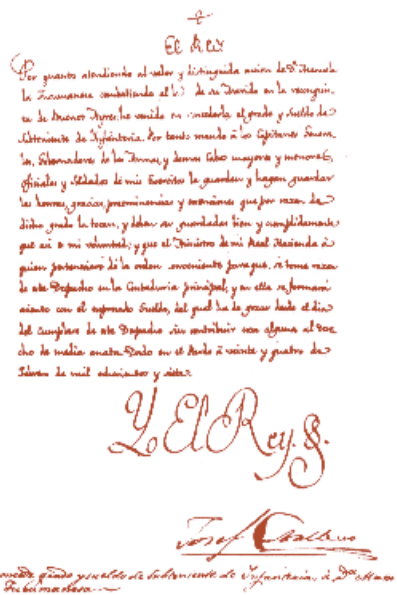 El Rey
Por quanto atendiendo al valor y distinguida accion de Dª Manuela
la Tucumanesa combatiendo al lado de su Marido en la reconquis-
ta de Buenos Ayres, he venido en concederla el grado y Sueldo de
Subteniente de Infantería. Por tanto mando á los Capitanes Genera-
les, Gobernadores de las Armas, y demas Cabos mayores y menores,
Oficiales y Soldados de mis Exercitos la guarden y hagan guardar
las honras, gracias, preeminencias y exenciones que por razon de
dicho grado la tocan, y deban ser guardadas bien y cumplidamente
que asi es mi voluntad; y que el Ministro de mi Real Hacienda á
quien perteneciere dé la orden conveniente para que se tome razon
de este Despacho en la Contaduria principal, y en ella se formará
asiento con el expresado Sueldo, del qual ha de gozar desde el dia
del Cumplase de este Despacho sin contribuir cosa alguna al dere-
cho de media anata. Dado en el Pardo á veinte y quatro de
de mil ochocientos y siete.
Yo El Rey.
Josef Caballero
grado y sueldo de Subteniente de Infantería, á Dª
Tucumanesa